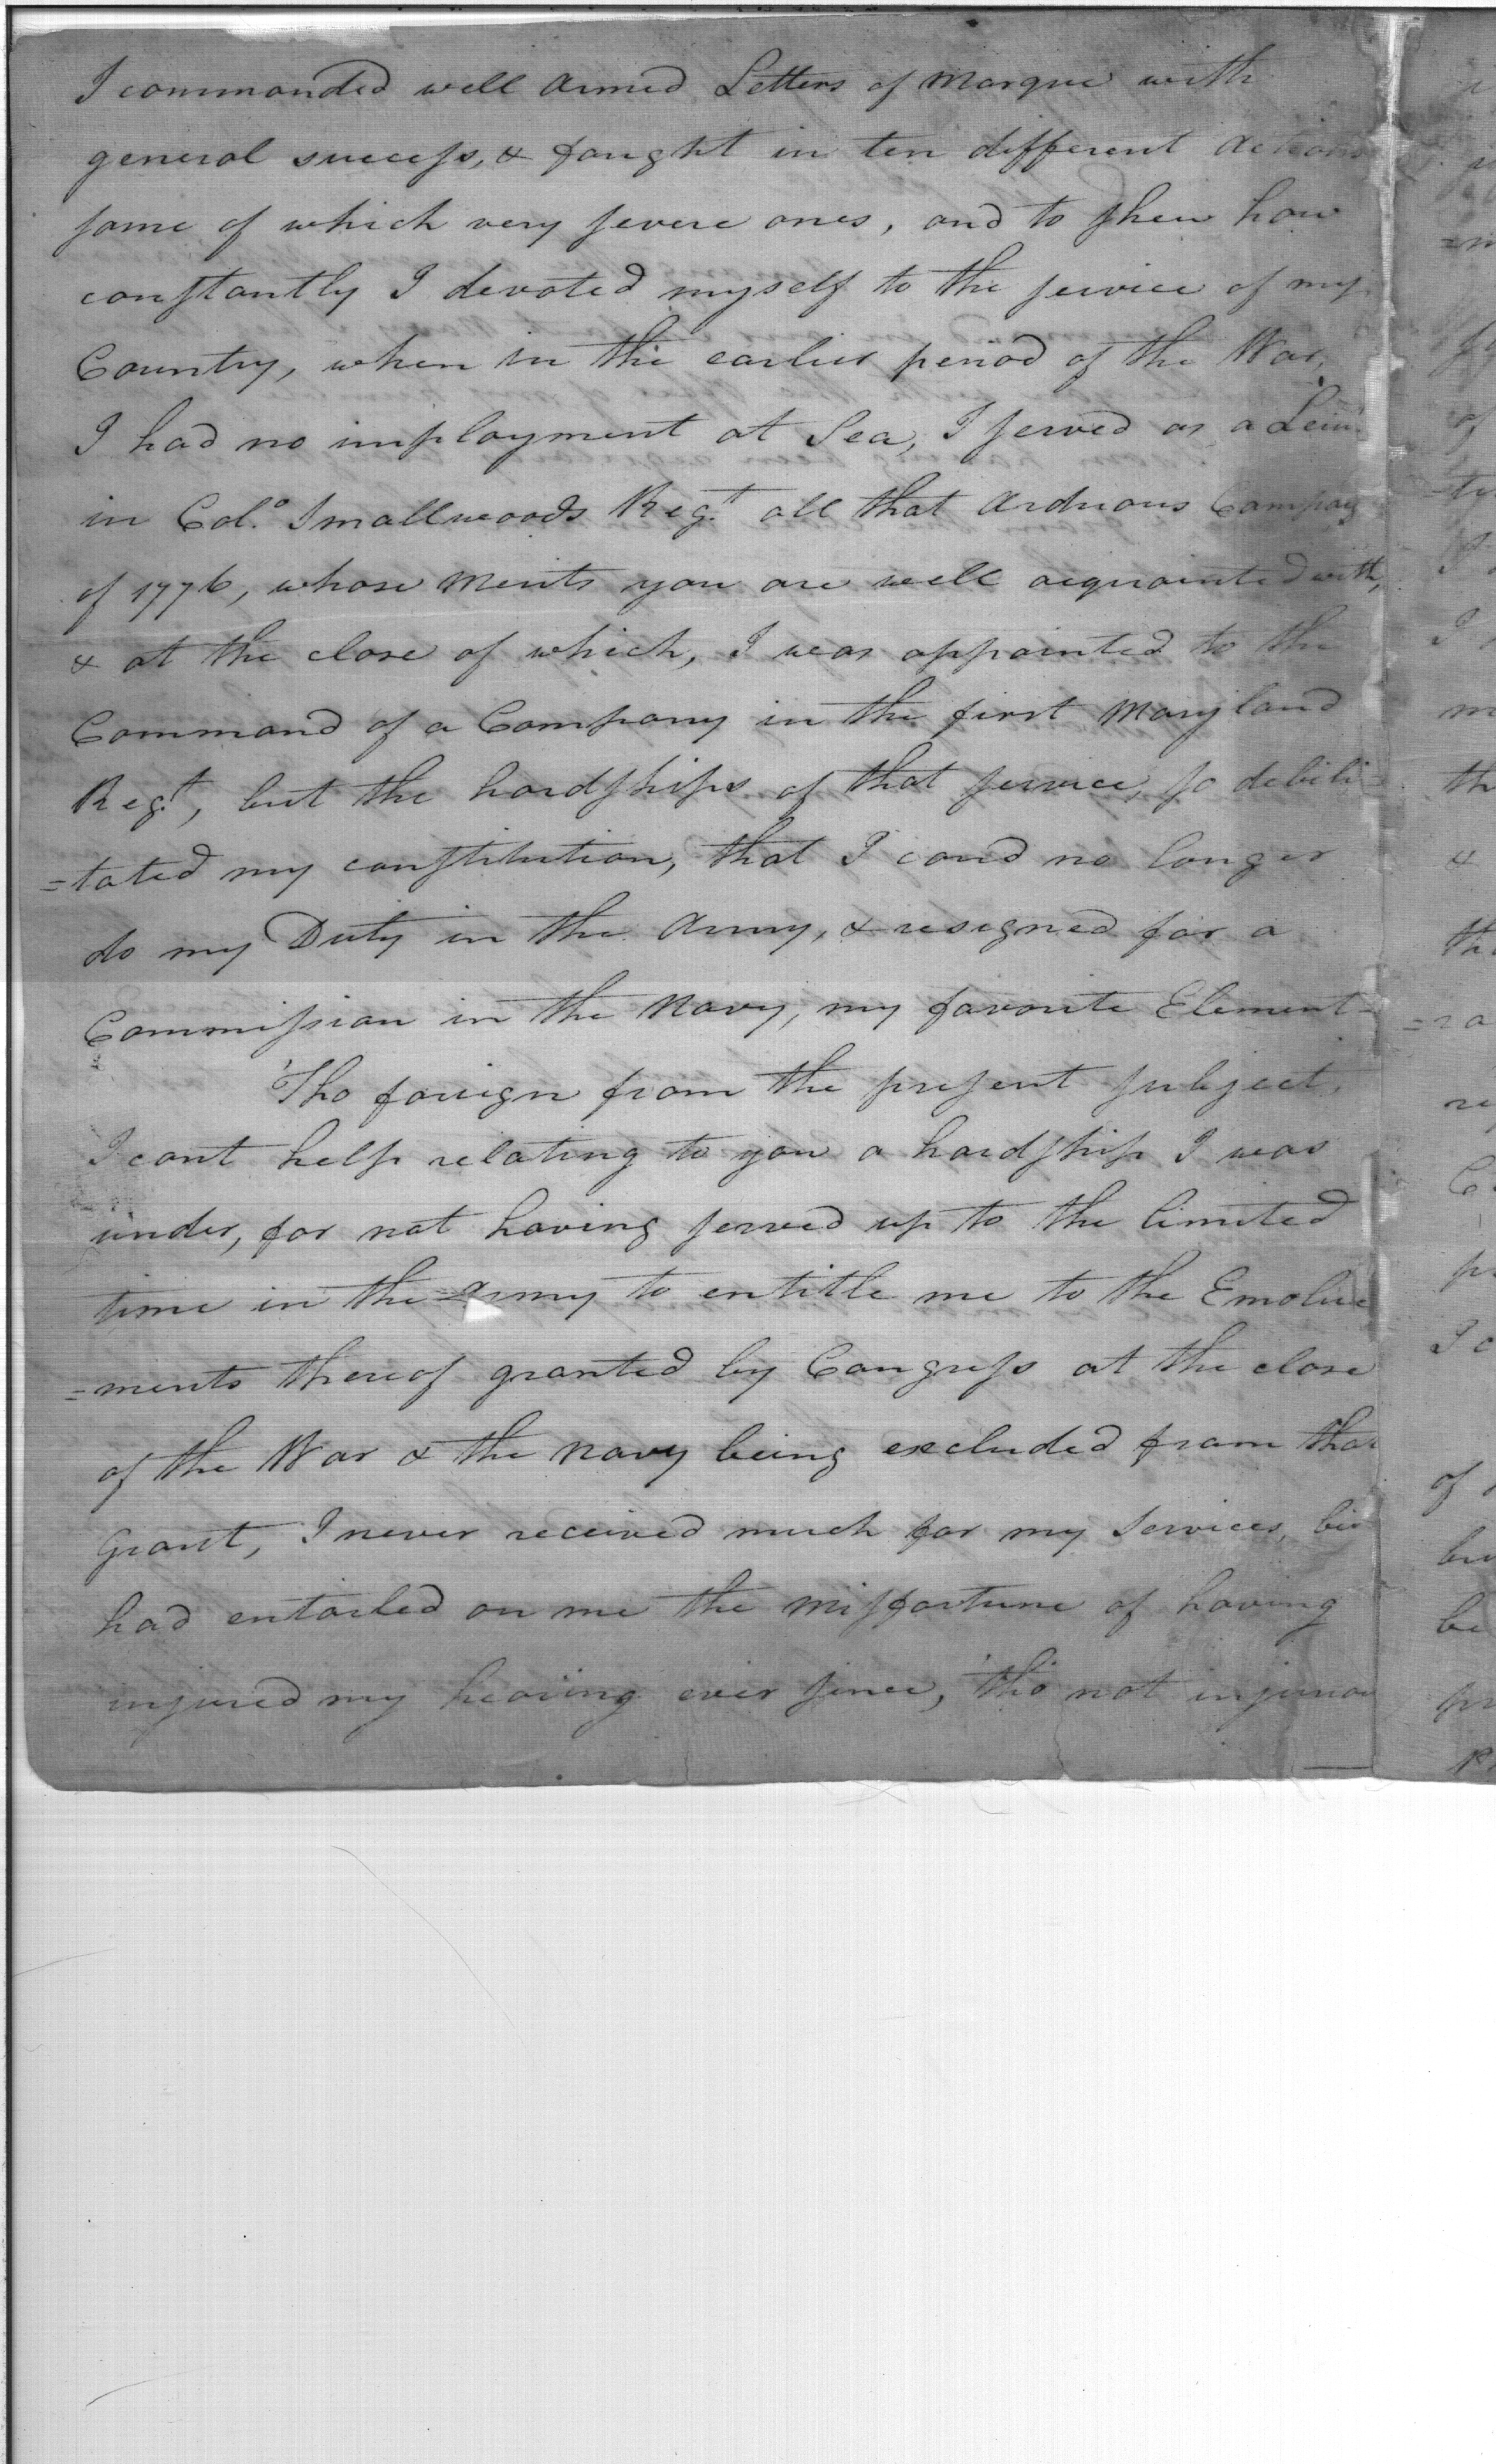 I commanded well Armed Letters of Marque with
general success, & fought in ten different Actions
some of which very severe ones, and to shew how
constantly I devoted myself to the service of my
Country, when in the earlier period of the War,
I had no imployment at Sea, I served as a Leiu.t
in Col.o Smallwoods Reg.t all that Arduous Campaig
of 1776, whose Merits you are well acquainted with,
& at the close of which, I was appointed to the
Command of a Company in the first Maryland
Reg.t, but the hardships of that service, so debili
=tated my constitution, that I coud no longer
do my Duty in the Army, & resigned for a
Commission in the Navy, my favorite Element=
Tho foreign from the present subject,
I cant help relating to you a hardship I was
under, for not having served up to the limited
time in the Army to entitle me to the Emolu
=ments thereof granted by Congress at the close
of the War & the Navy being excluded from that
Grant, I never received much for my Services, but
had entailed on me the missfortune of having
injured my hearing ever since, tho' not injurou